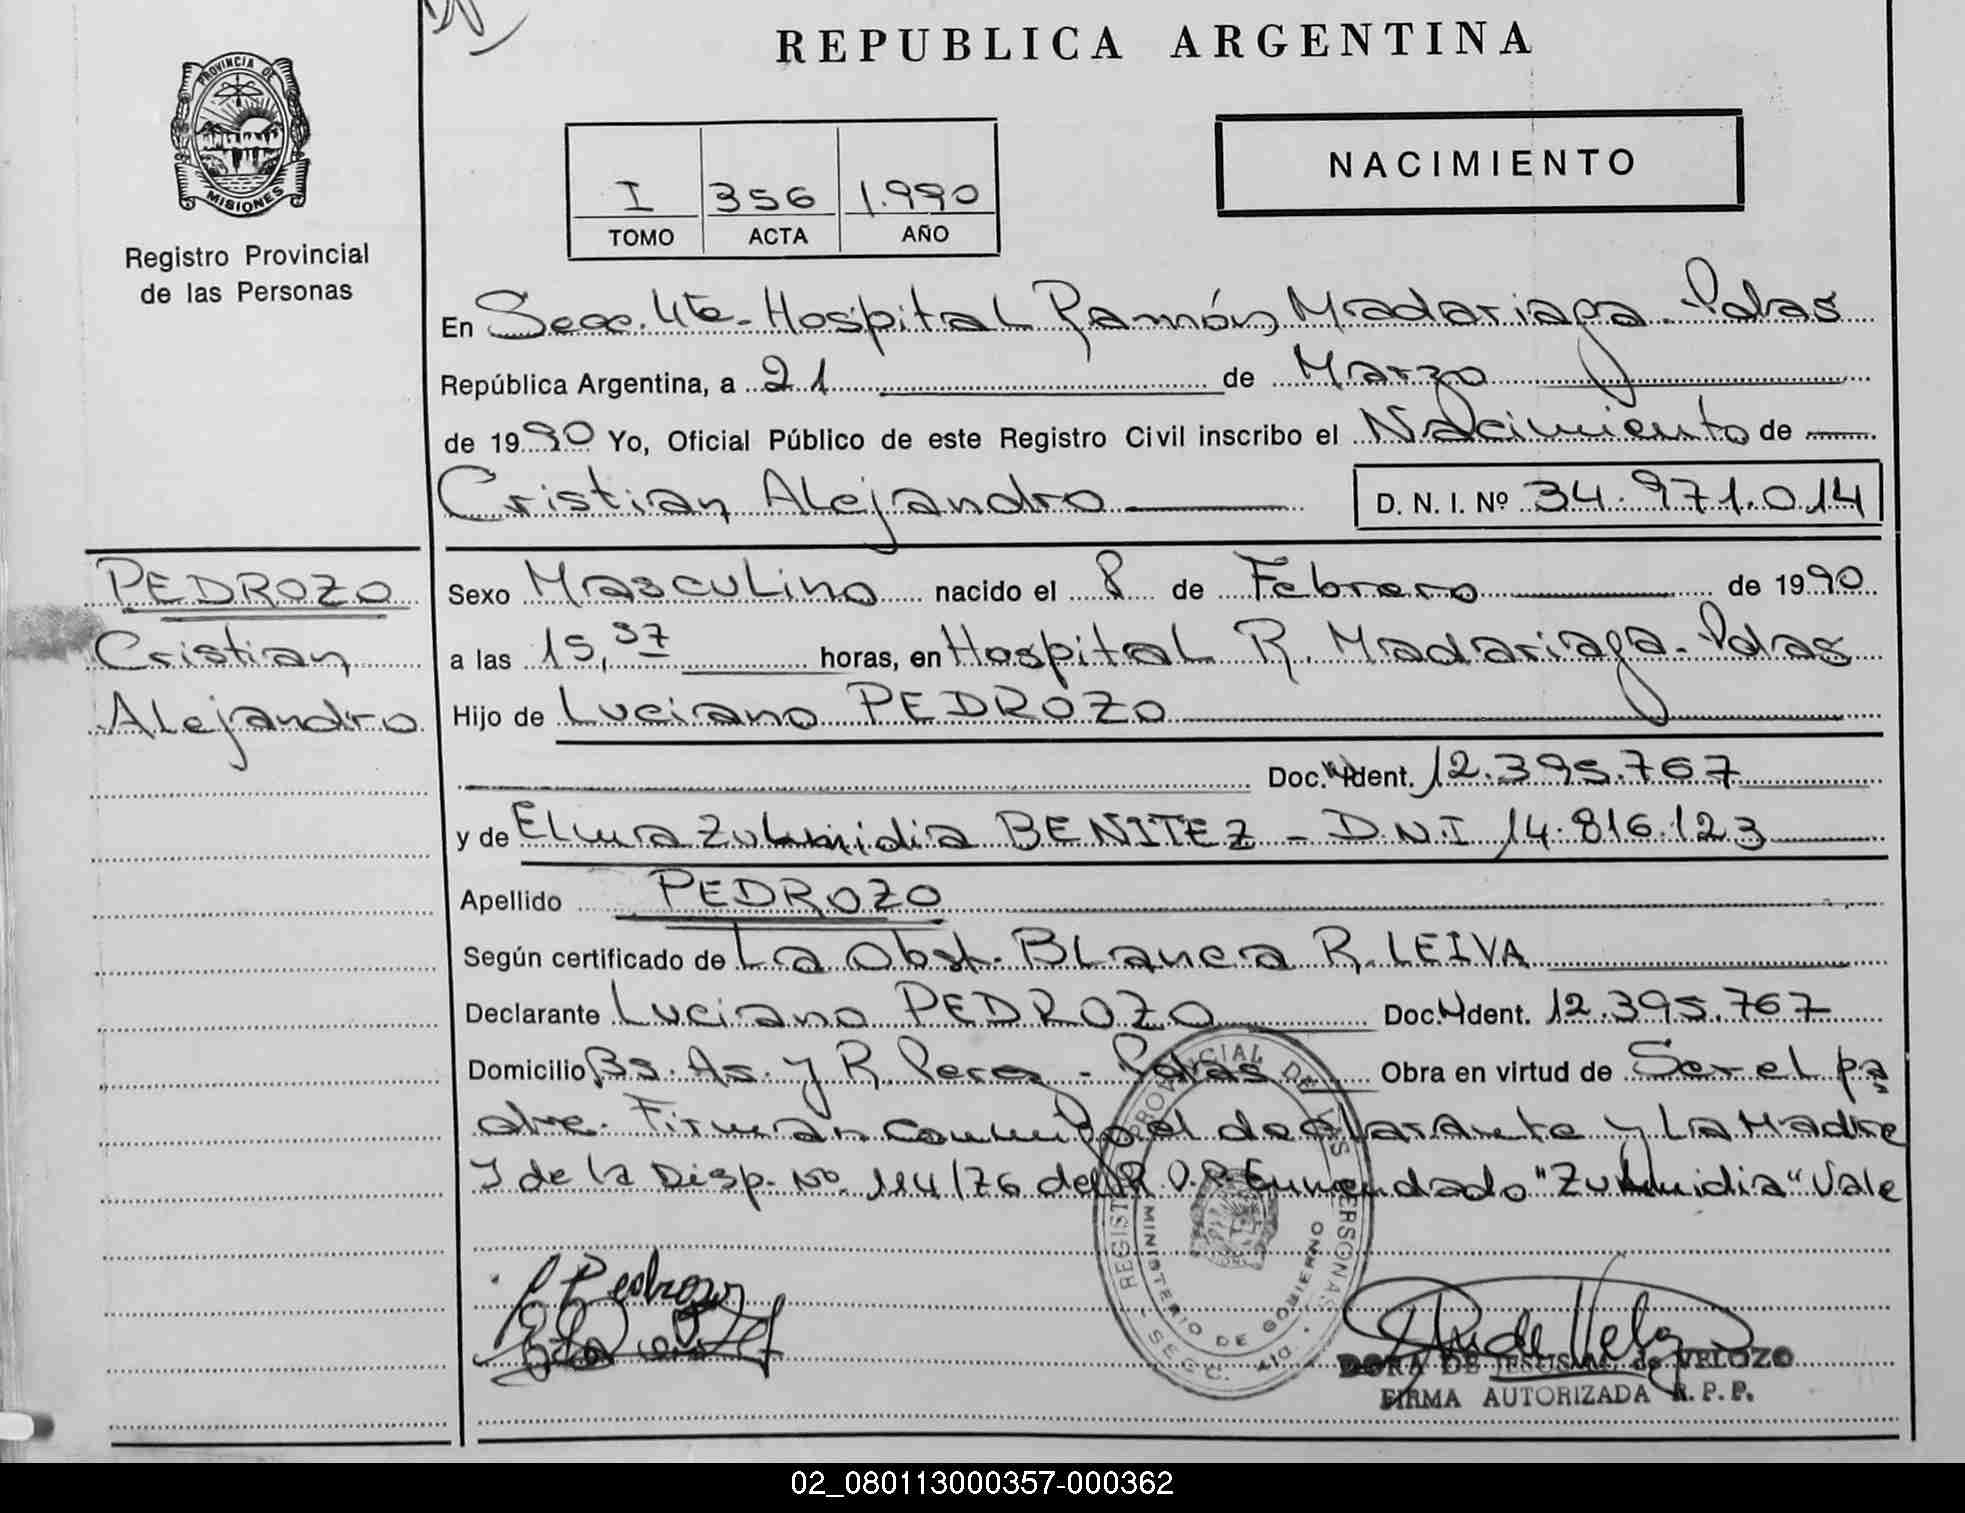 REPUBLICA ARGENTINA
PROVINCIA DE MISIONES
Registro Provincial
de las Personas
I 356 1.990
TOMO ACTA AÑO
NACIMIENTO
En Secc. 4ta. Hospital Ramón Madariaga - Pdas
República Argentina, a 21 de Marzo
de 1990 Yo, Oficial Público de este Registro Civil inscribo el Nacimiento de
Cristian Alejandro D. N. I. Nº 34.971.014
PEDROZO
Cristian
Alejandro
Sexo Masculino nacido el 8 de Febrero de 1990
a las 15,37 horas, en Hospital R. Madariaga - Pdas
Hijo de Luciano PEDROZO
Doc. Ident. 12.395.767
y de Elma Zulmidia BENITEZ - D.N.I 14.816.123
Apellido PEDROZO
Según certificado de La Obst. Blanca R. LEIVA
Declarante Luciano PEDROZO Doc. Ident. 12.395.767
Domicilio Bs. As. y R. Perez - Pdas Obra en virtud de Ser el pa
dre. Firman conmigo el declarante y La Madre
I de la Disp. No. 114/76 del R.P.P. Enmendado "Zulmidia" Vale
REGISTRO PROVINCIAL DE LAS PERSONAS
MINISTERIO DE GOBIERNO
SECC.
L Pedrozo
DORA DE JESUS M. de VELOZO
FIRMA AUTORIZADA R. P. P.
02_080113000357-000362